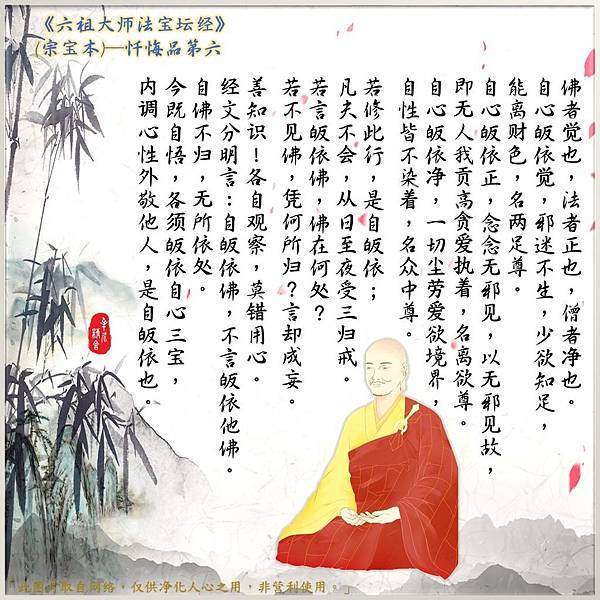 《六祖大师法宝坛经》
(宗宝本)—忏悔品第六
佛者觉也，法者正也，僧者净也。
自心皈依觉，邪迷不生，少欲知足，
能离财色，名两足尊。
自心皈依正，念念无邪见，以无邪见故，
即无人我贡高贪爱执着，名离欲尊。
自心皈依净，一切尘劳爱欲境界，
自性皆不染着，名众中尊。
若修此行，是自皈依；
凡夫不会，从日至夜受三归戒。
若言皈依佛，佛在何处？
若不见佛，凭何所归？言却成妄。
善知识！各自观察，莫错用心。
经文分明言：自皈依佛，不言皈依他佛。
自佛不归，无所依处。
今既自悟，各须皈依自心三宝，
内调心性外敬他人，是自皈依也。
「此图片取自网络，仅供净化人心之用，非营利使用。」